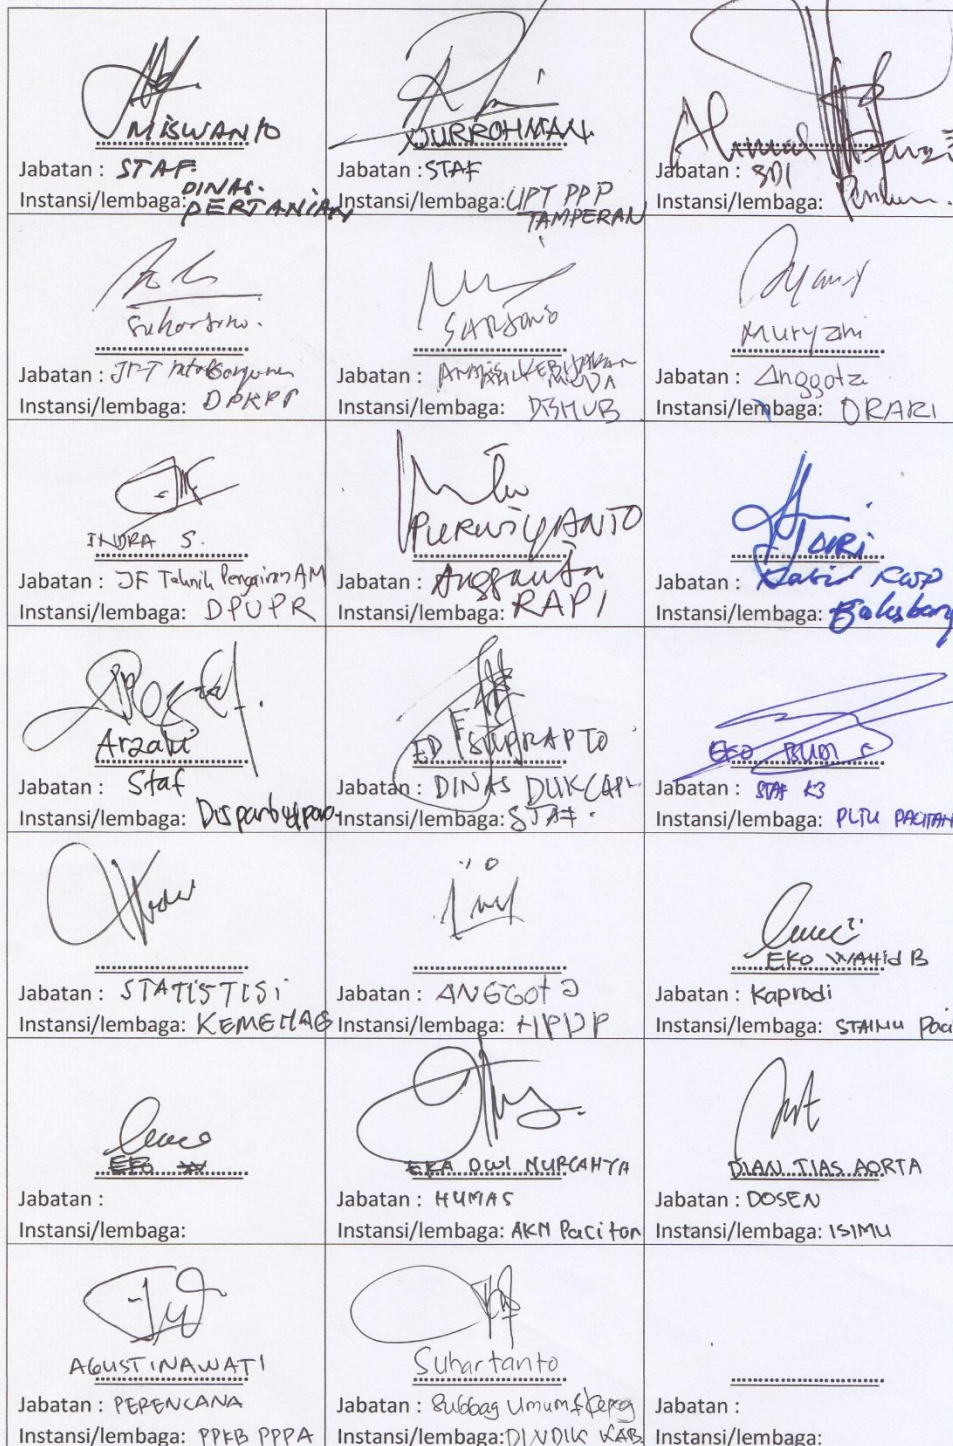 MISWANTO
Jabatan : STAF
Instansi/lembaga: DINAS. PERTANIAN
NURROHMAN
Jabatan : STAF
Instansi/lembaga: UPT PPP TAMPERAN
Jabatan : SDI
Instansi/lembaga:
Suhartino.
Jabatan : JFT
Instansi/lembaga: DPKPP
SARJONO
Jabatan : ANALIS KEBIJAKAN MUDA
Instansi/lembaga: DISHUB
Muryani
Jabatan : Anggota
Instansi/lembaga: ORARI
INDRA S.
Jabatan : JF Teknik Pengairan AM
Instansi/lembaga: DPUPR
PURWIYANTO
Jabatan : Anggauta
Instansi/lembaga: RAPI
Jabatan : Kabid
Instansi/lembaga: Bakesbang
Arzaki
Jabatan : Staf
Instansi/lembaga: Disparbudpora
ED SUPRAPTO
Jabatan : DINAS DUKCAPIL
Instansi/lembaga: STAF.
EKO BUDI S
Jabatan : STAF K3
Instansi/lembaga: PLTU PACITAN
Jabatan : STATISTISI
Instansi/lembaga: KEMENAG
Jabatan : ANGGOTA
Instansi/lembaga: HPPP
EKO WAHID B
Jabatan : Kaprodi
Instansi/lembaga: STAIMU Paci
Jabatan :
Instansi/lembaga:
EKA DWI NURCAHYA
Jabatan : HUMAS
Instansi/lembaga: AKN Pacitan
DIAN TIAS AORTA
Jabatan : DOSEN
Instansi/lembaga: ISIMU
AGUSTINAWATI
Jabatan : PERENCANA
Instansi/lembaga: PPKB PPPA
Suhartanto
Jabatan : Subbag Umum & Kepeg
Instansi/lembaga: DINDIK KAB
Jabatan :
Instansi/lembaga: